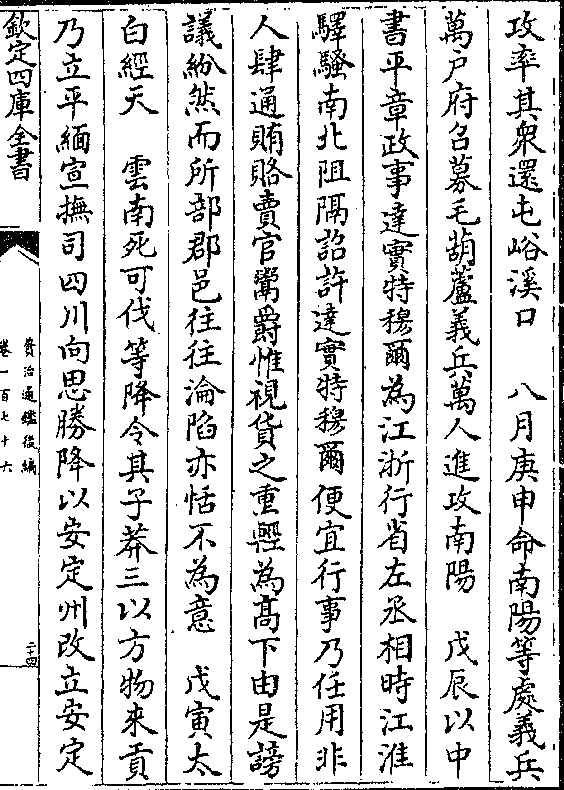 攻率其衆還屯峪溪口　八月庚申命南陽等處義兵
萬户府召募毛葫蘆義兵萬人進攻南陽　戊辰以中
書平章政事達實特穆爾為江浙行省左丞相時江淮
驛騷南北阻隔詔許達實特穆爾便宜行事乃任用非
人肆通賄賂賣官鬻爵惟視貨之重輕為髙下由是謗
議紛然而所部郡邑往往淪陷亦恬不為意　戊寅太
白經天　雲南死可伐等降令其子莽三以方物來貢
乃立平緬宣撫司四川向思勝降以安定州改立安定
欽定四庫全書
資治通鑑後編
卷一百七十六
二十四